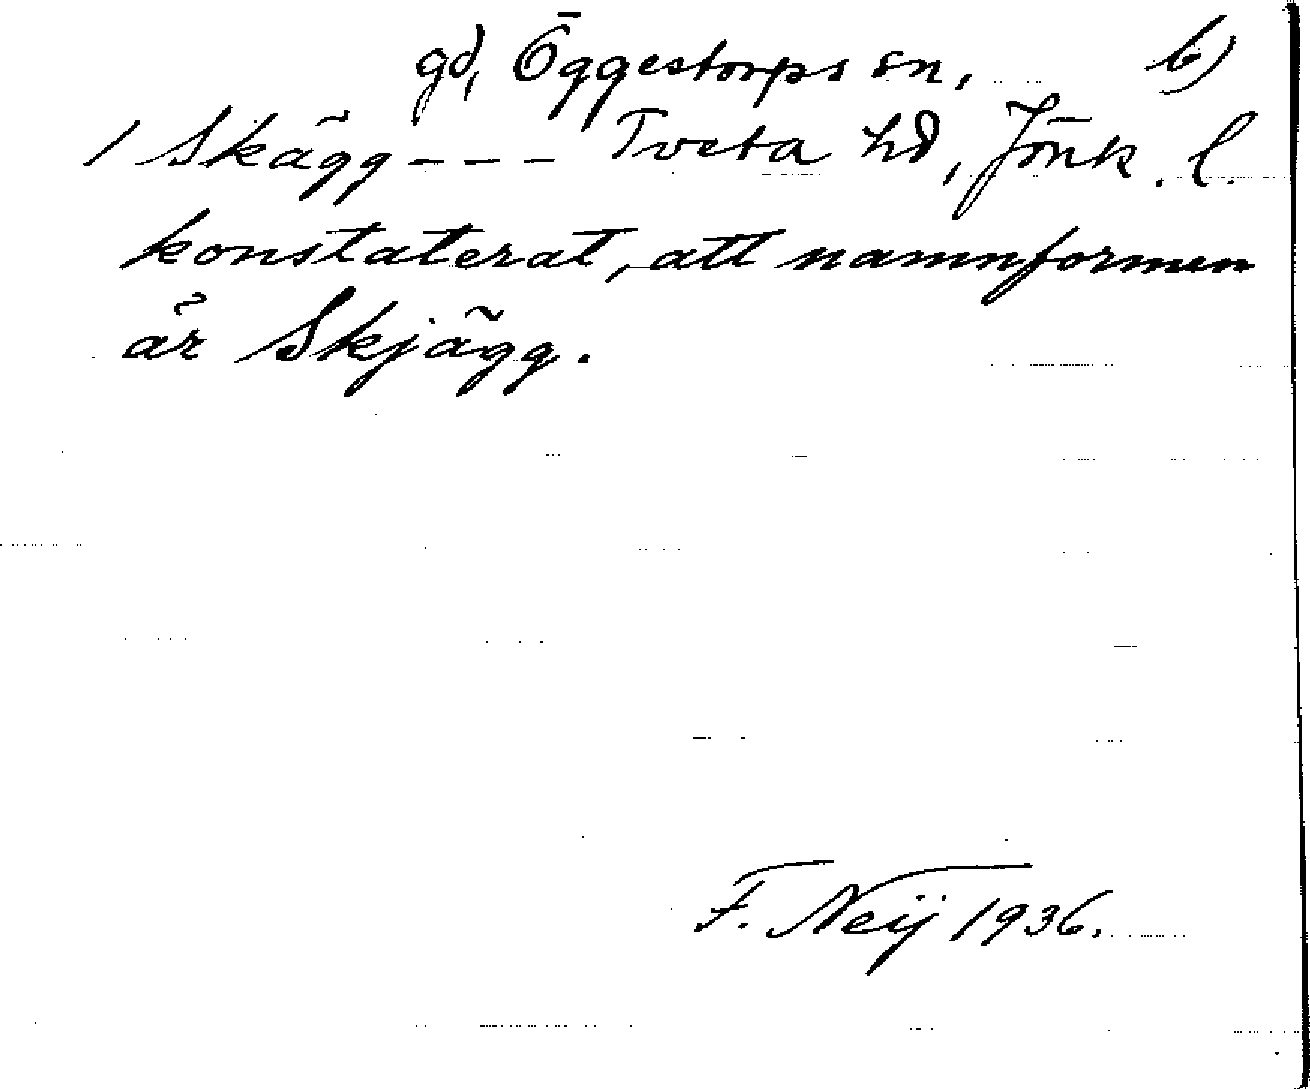 gd, Öggestorps sn, b)
/ Skägg - - - Tveta hd, Jönk. l.
konstaterat, att namnformen
är Skjägg.
F. Neij 1936.